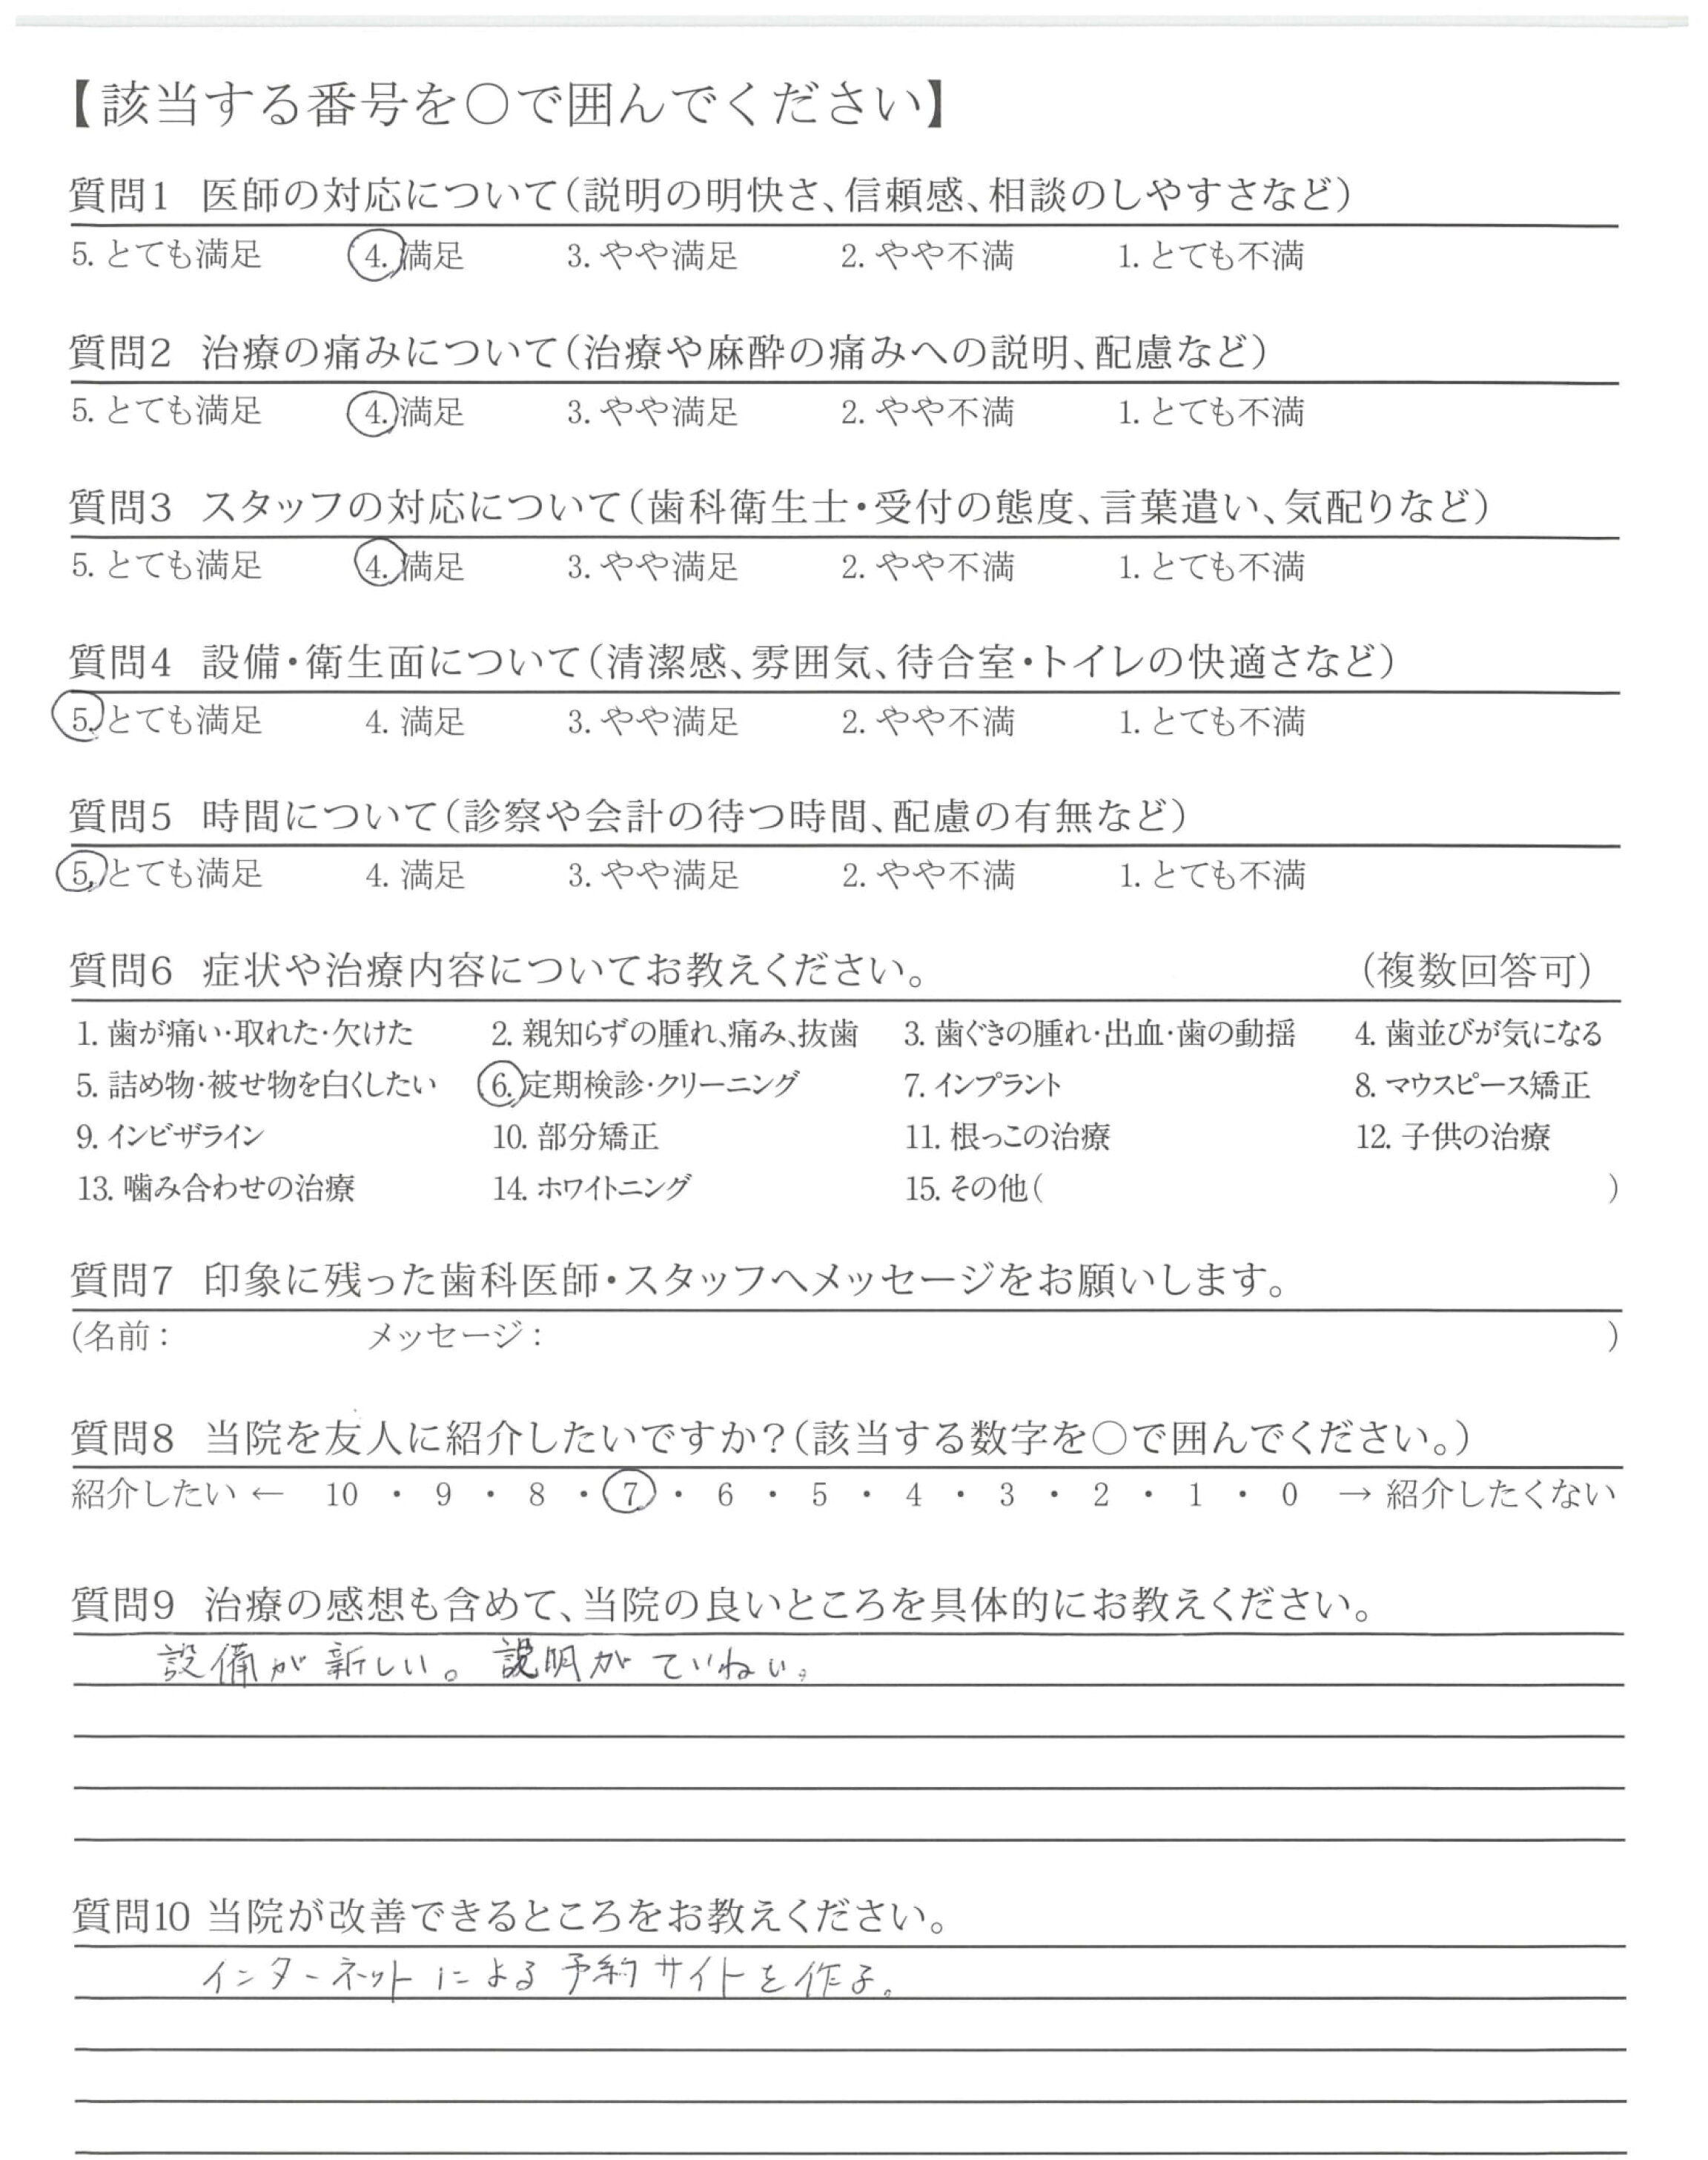 【該当する番号を○で囲んでください】
質問1 医師の対応について(説明の明快さ、信頼感、相談のしやすさなど)
5. とても満足 4. 満足 3. やや満足 2. やや不満 1. とても不満
質問2 治療の痛みについて(治療や麻酔の痛みへの説明、配慮など)
5. とても満足 4. 満足 3. やや満足 2. やや不満 1. とても不満
質問3 スタッフの対応について(歯科衛生士・受付の態度、言葉遣い、気配りなど)
5. とても満足 4. 満足 3. やや満足 2. やや不満 1. とても不満
質問4 設備・衛生面について(清潔感、雰囲気、待合室・トイレの快適さなど)
5. とても満足 4. 満足 3. やや満足 2. やや不満 1. とても不満
質問5 時間について(診察や会計の待つ時間、配慮の有無など)
5. とても満足 4. 満足 3. やや満足 2. やや不満 1. とても不満
質問6 症状や治療内容についてお教えください。 (複数回答可)
1. 歯が痛い・取れた・欠けた 2. 親知らずの腫れ、痛み、抜歯 3. 歯ぐきの腫れ・出血・歯の動揺 4. 歯並びが気になる
5. 詰め物・被せ物を白くしたい 6. 定期検診・クリーニング 7. インプラント 8. マウスピース矯正
9. インビザライン 10. 部分矯正 11. 根っこの治療 12. 子供の治療
13. 噛み合わせの治療 14. ホワイトニング 15. その他( )
質問7 印象に残った歯科医師・スタッフへメッセージをお願いします。
(名前: メッセージ: )
質問8 当院を友人に紹介したいですか?(該当する数字を○で囲んでください。)
紹介したい ← 10 ・ 9 ・ 8 ・ 7 ・ 6 ・ 5 ・ 4 ・ 3 ・ 2 ・ 1 ・ 0 → 紹介したくない
質問9 治療の感想も含めて、当院の良いところを具体的にお教えください。
設備が新しい。説明がていねい。
質問10 当院が改善できるところをお教えください。
インターネットによる予約サイトを作る。